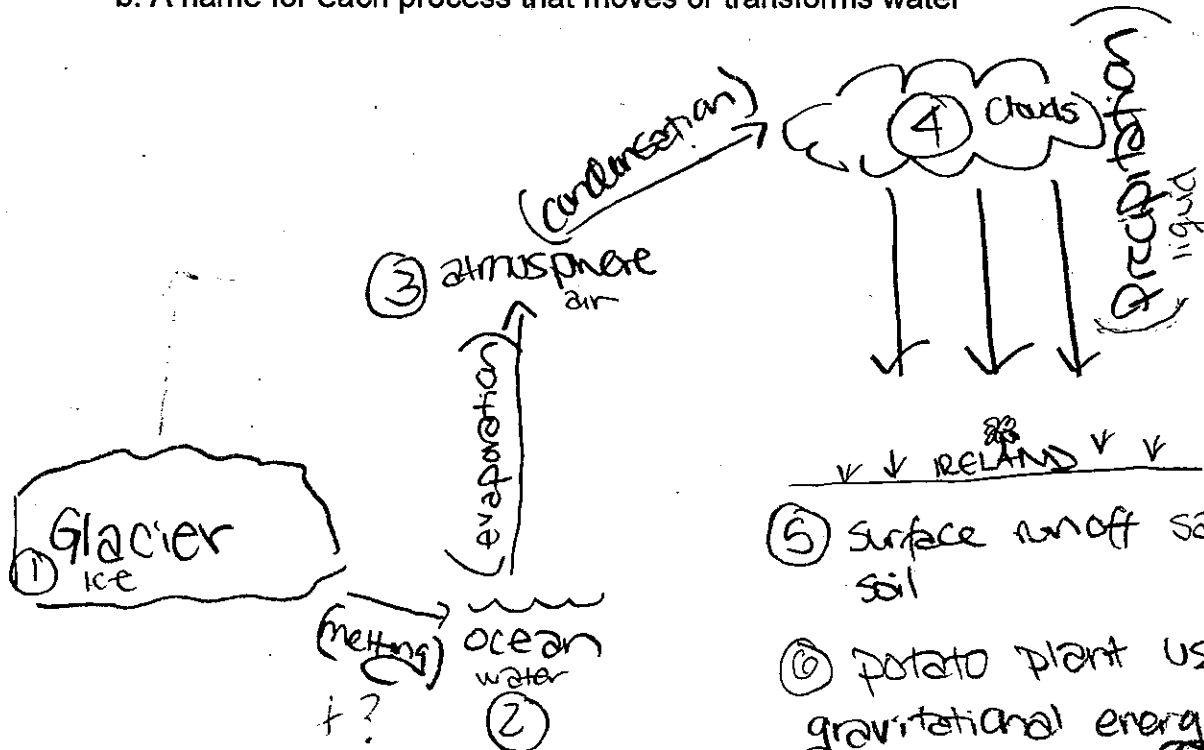 b. A name for each process that moves or transforms water
(condensation)
④ Clouds
(Precipitation)
liquid
③ atmosphere
air
(evaporation)
IRELAND
Glacier
① ice
(melting)
+ ?
ocean
water
②
⑤ surface runoff
soil
⑥ potato plant
gravitational